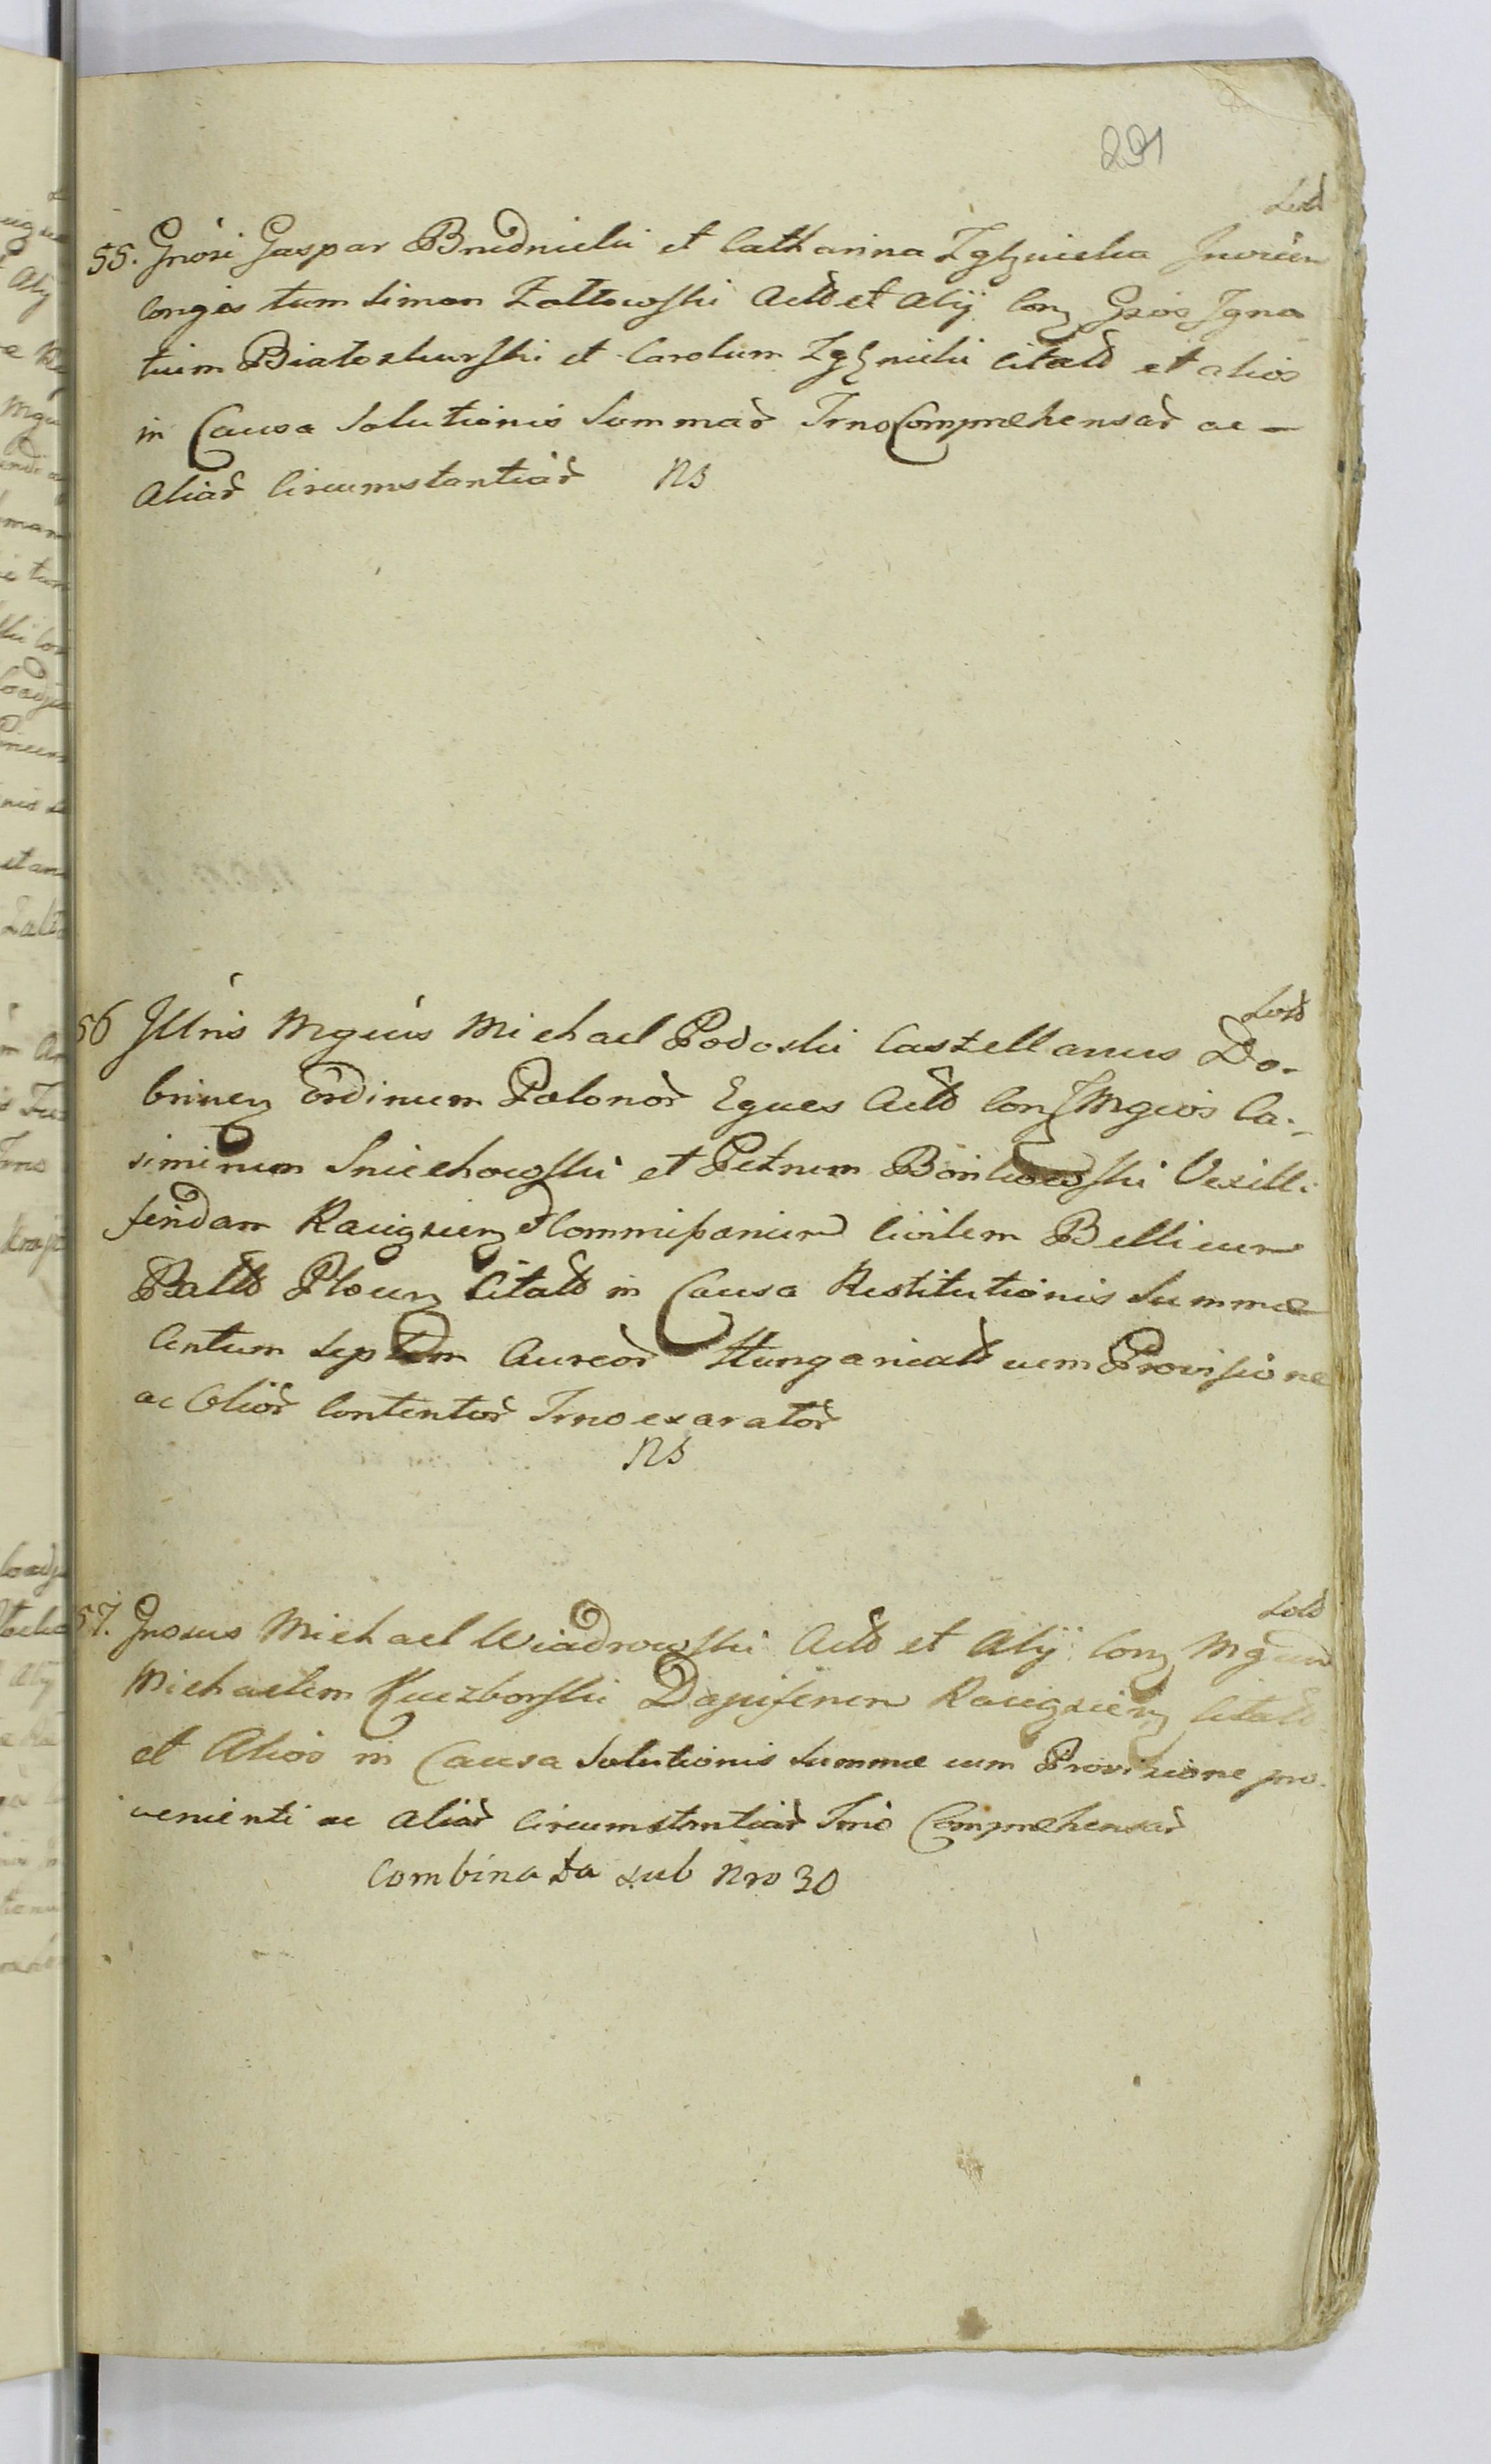 291
55. Gnosi Gaspar Brudnicki et Catharina Zglinicka Jnvicem
Conges tum Simon Zołtowski Actd et Alij Con Gsos Igna
tium Białoskurski et Carolum Zglnicki Citatd et alios
in Causa Solutionis Summar Trno Compræhensar ac –
Aliar Circumstantiar NS
56 Jllris Mgcus Michael Podoski Castellanus Do-
brinen Ordinum Polonor Eques Actd Con Mgcos Ca-
simirum Sniechowski et Petrum Bońkowski Vexilli
ferdam Raciązien Commissarium Civilem Bellicum
Palttd Plocen Citatd in Causa Restitutionis Summæ
Centum Septem Aureor Hungaricald cum Provisione
ac Alior Contentor Trno exarator
NS
57. Gnosus Michael Wiadrowski Actd et Alij Con Mgcum
Michaelem Kuczborski Dapiferum Raciązien Citatd
et Alios in Causa Solutionis Summæ cum Provisione pro-
venienti ac Aliar Circumstantiar Trno Comprehensar
Combinata sub Nro 30